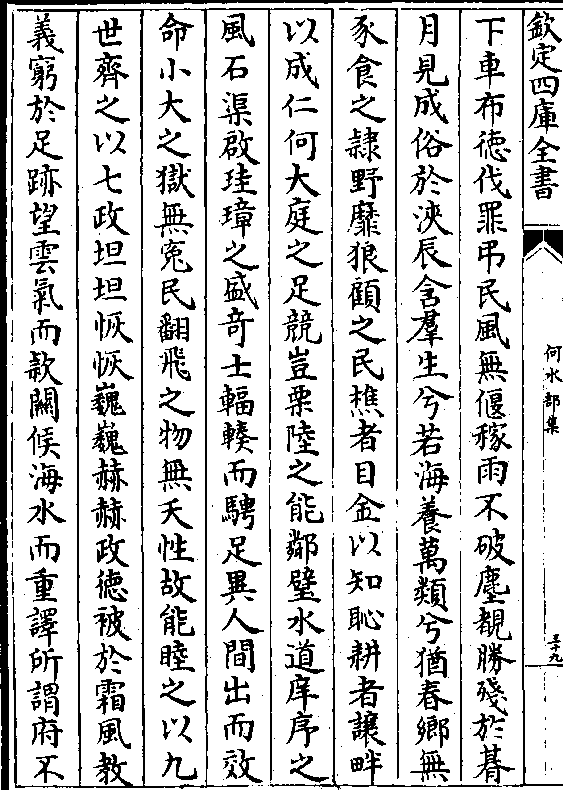 欽定四庫全書
何水部集
三十九
下車布徳伐罪弔民風無偃稼雨不破塵覩勝殘於朞
月見成俗於浹辰含羣生兮若海養萬類兮猶春鄉無
豕食之隷野靡狼顧之民樵者目金以知恥耕者譲畔
以成仁何大庭之足競豈栗陸之能鄰璧水道庠序之
風石渠啟珪璋之盛竒士輻輳而騁足異人間出而效
命小大之獄無寃民翻飛之物無夭性故能睦之以九
世齊之以七政坦坦恢恢巍巍赫赫政徳被於霜風教
義窮於足跡望雲氣而款闕候海水而重譯所謂府不